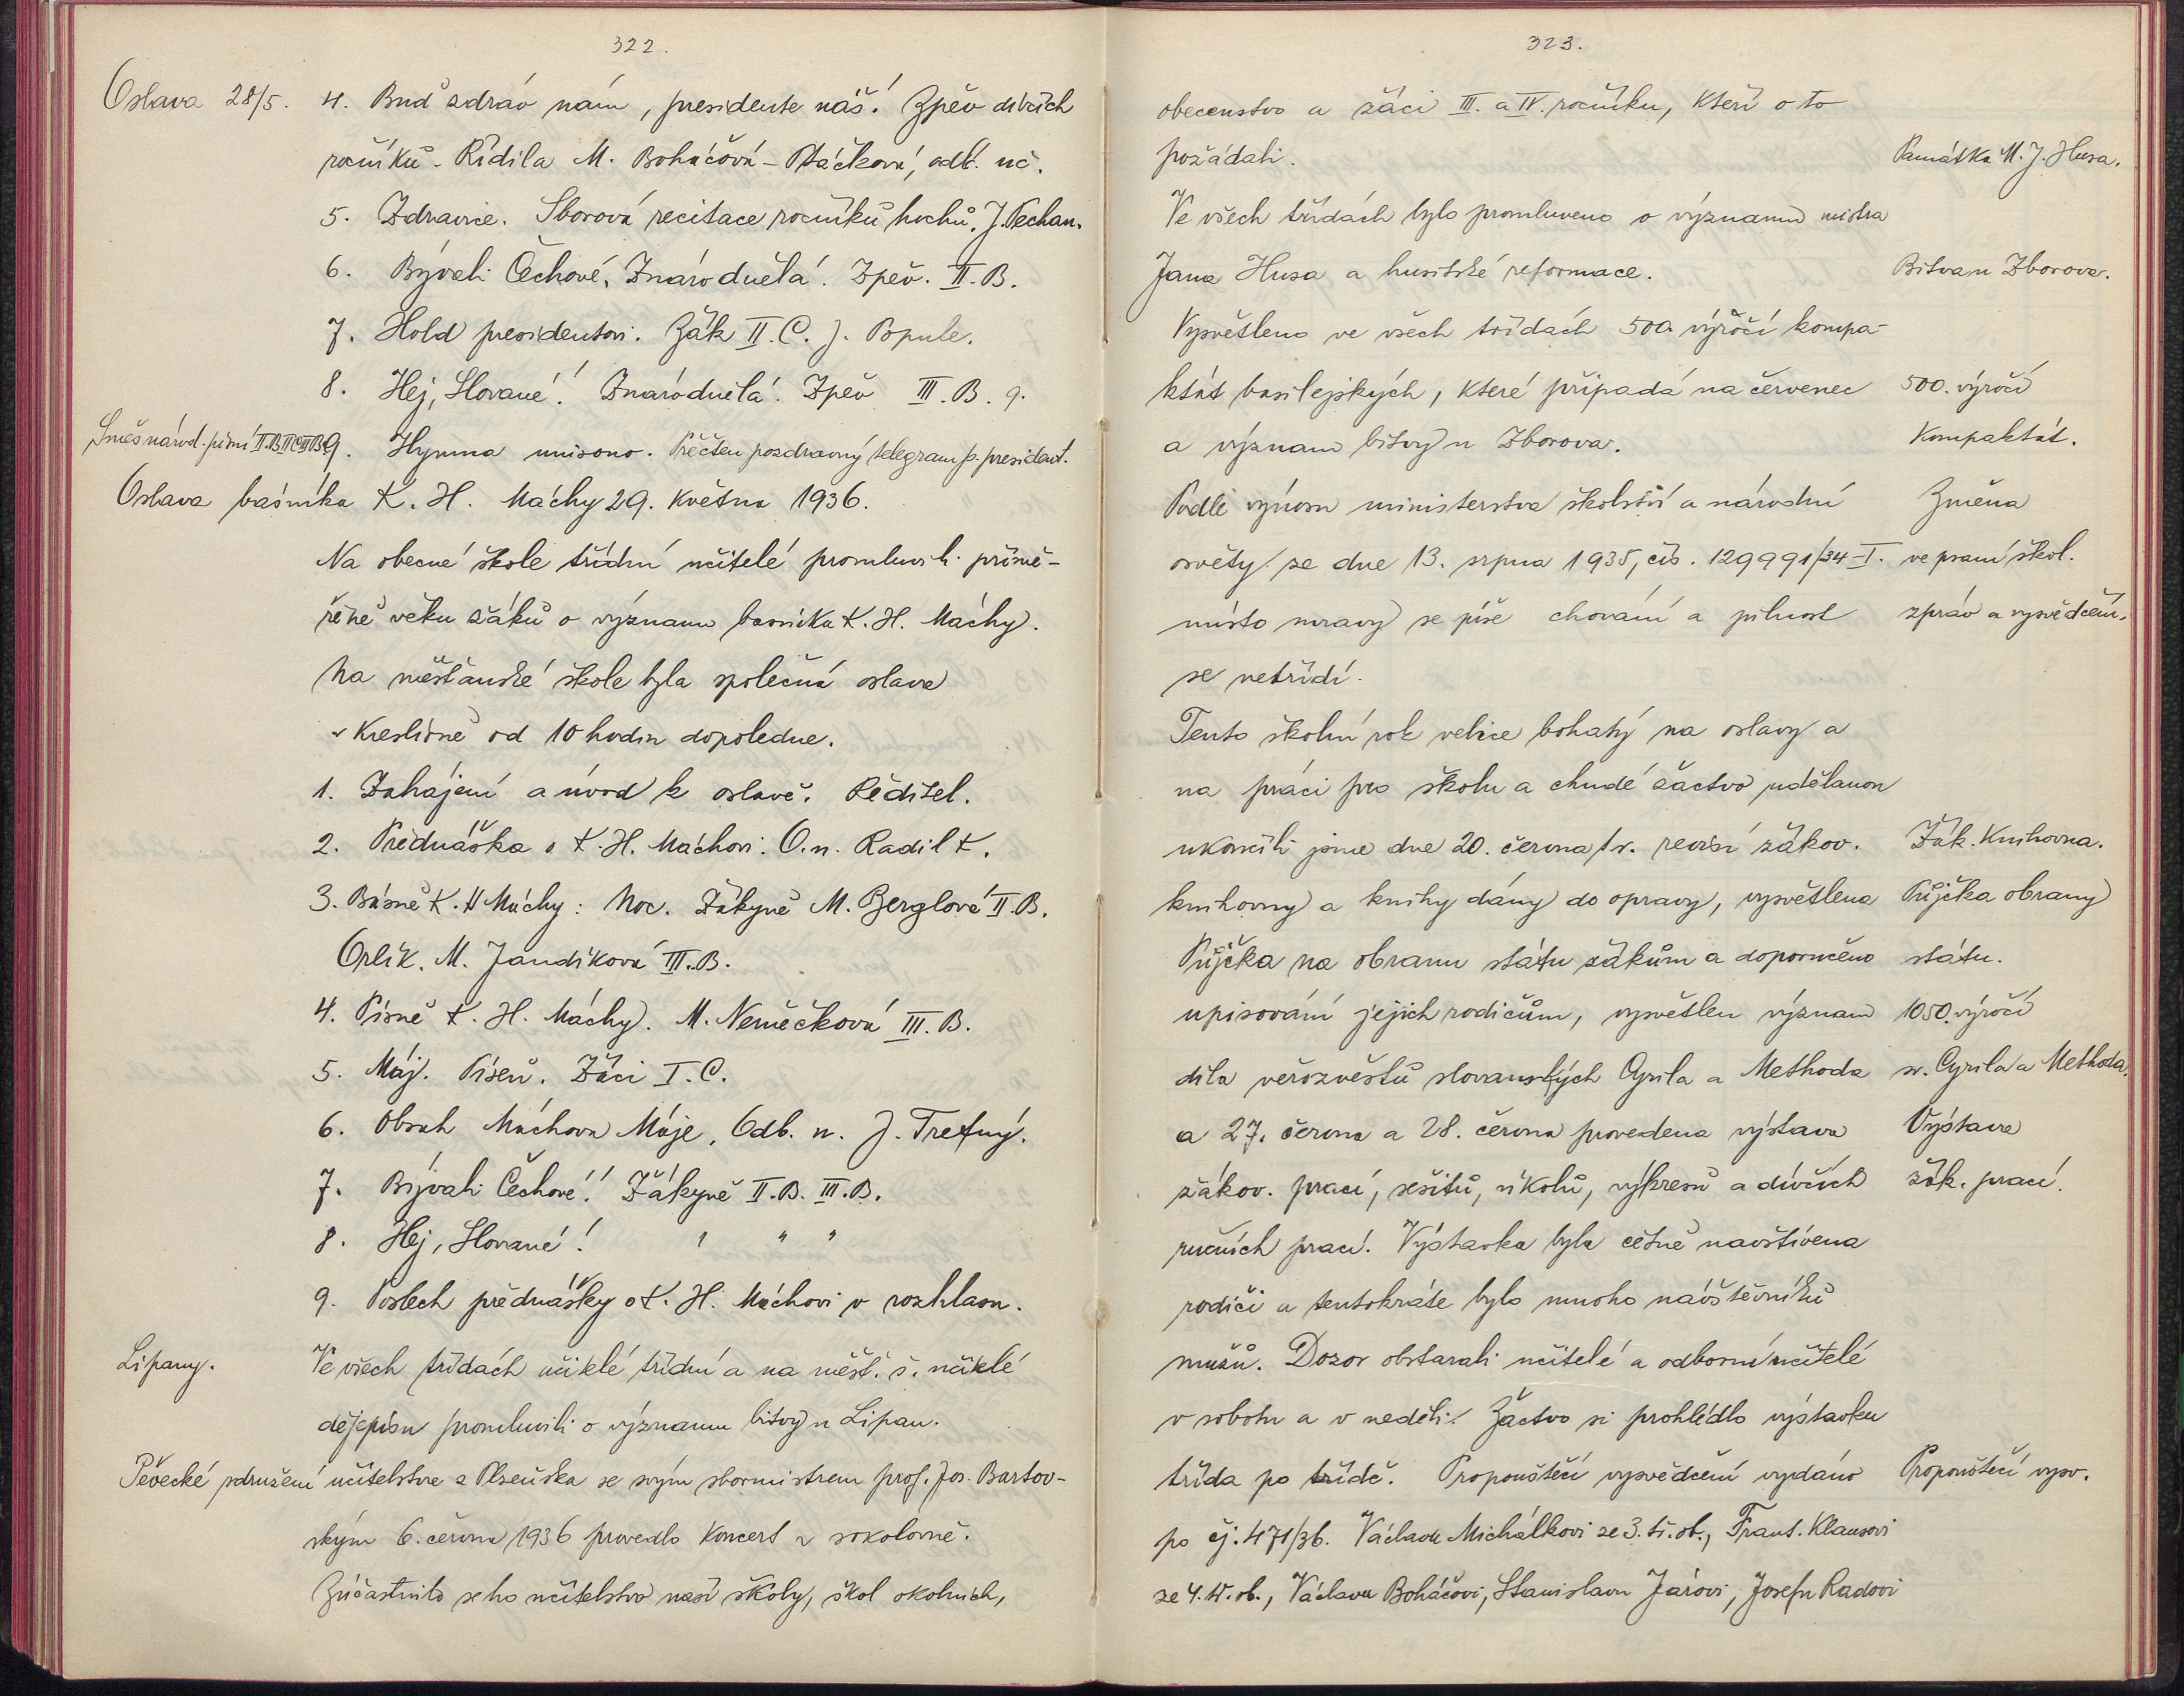 322.
Oslava 28/5. 4. Buď zdráv nám, presidente náš! Zpěv dívčích
ročníků. Řídila M. Boháčová-Ptáčková, odb. uč.
5. Zdravice. Sborová recitace ročníků hochů. J. Pechan.
6. Bývali Čechové. Znárodnělá. Zpěv. II. B.
7. Hold presidentovi. Žák II. C. J. Popule.
8. Hej, Slované! Znárodnělá. Zpěv III. B. 9.
Směs národ. písní II.B II C III B. 9. Hymna unisono. Přečten pozdravný telegram p. president.
Oslava básníka K. H. Máchy 29. května 1936.
Na obecné škole třídní učitelé promluvili přimě-
řeně věku žáků o významu básníka K. H. Máchy.
Na měšťanské škole byla společná oslava
v kreslírně od 10 hodin dopoledne.
1. Zahájení a úvod k oslavě. Ředitel.
2. Přednáška o K. H. Máchovi. O. u. Radil K.
3. Básně K. H Máchy: Noc. Žákyně M. Berglová II. B.
Orlík. M. Jandíková III. B.
4. Písně K. H. Máchy. M. Němečková III. B.
5. Máj. Píseň. Žáci I. C.
6. Obsah Máchova Máje. Odb. u. J. Tretný.
7. Bývali Čechové! Žákyně II. B. III. B.
8. Hej, Slované! " " "
9. Poslech přednášky o K. H. Máchovi v rozhlasu.
Lipany. Ve všech třídách učitelé třídní a na měšť. š. učitelé
dějepisu promluvili o významu bitvy u Lipan.
Pěvecké sdružení učitelstva z Plzeňska se svým sbormistrem prof. Jos. Bartov-
ským 6. června 1936 provedlo koncert v sokolovně.
Zúčastnilo se ho učitelstvo naší školy, škol okolních,
323.
obecenstvo a žáci III. a IV. ročníku, kteří o to
požádali. Památka M. J. Husa.
Ve všech třídách bylo promluveno o významu mistra
Jana Husa a husitské reformace. Bitva u Zborova.
Vysvětleno ve všech třídách 500. výročí kompa-
ktát basilejských, které připadá na červenec 500. výročí
a význam bitvy u Zborova. Kompaktát.
Podle výnosu ministerstva školství a národní Změna
osvěty ze dne 13. srpna 1935, čís. 129991/34-I. ve psaní škol.
místo mravy se píše chování a pilnost zpráv a vysvědčení.
se netřídí.
Tento školní rok velice bohatý na oslavy a
na práci pro školu a chudé žactvo udělanou
ukončili jsme dne 20. června t. r. revisí žákov. Žák. knihovna.
knihovny a knihy dány do opravy, vysvětlena Půjčka obrany
Půjčka na obranu státu žákům a doporučeno státu.
upisování jejich rodičům, vysvětlen význam 1050. výročí
díla věrozvěstů slovanských Cyrila a Methoda sv. Cyrila a Methoda.
a 27. června a 28. června provedena výstava Výstava
žákov. prací, sešitů, úkolů, výkresů a dívčích žák. prací.
ručních prací. Výstavka byla četně navštívena
rodiči a tentokráte bylo mnoho návštěvníků
mužů. Dozor obstarali učitelé a odborní učitelé
v sobotu a v neděli. Žactvo si prohlédlo výstavku
třída po třídě. Propouštěcí vysvědčení vydáno Propouštěcí vysv.
po čj. 471/36. Václavu Michálkovi ze 3. tř. ob., Frant. Klausovi
ze 4. tř. ob., Václavu Boháčovi, Stanislavu Járovi, Josefu Radovi